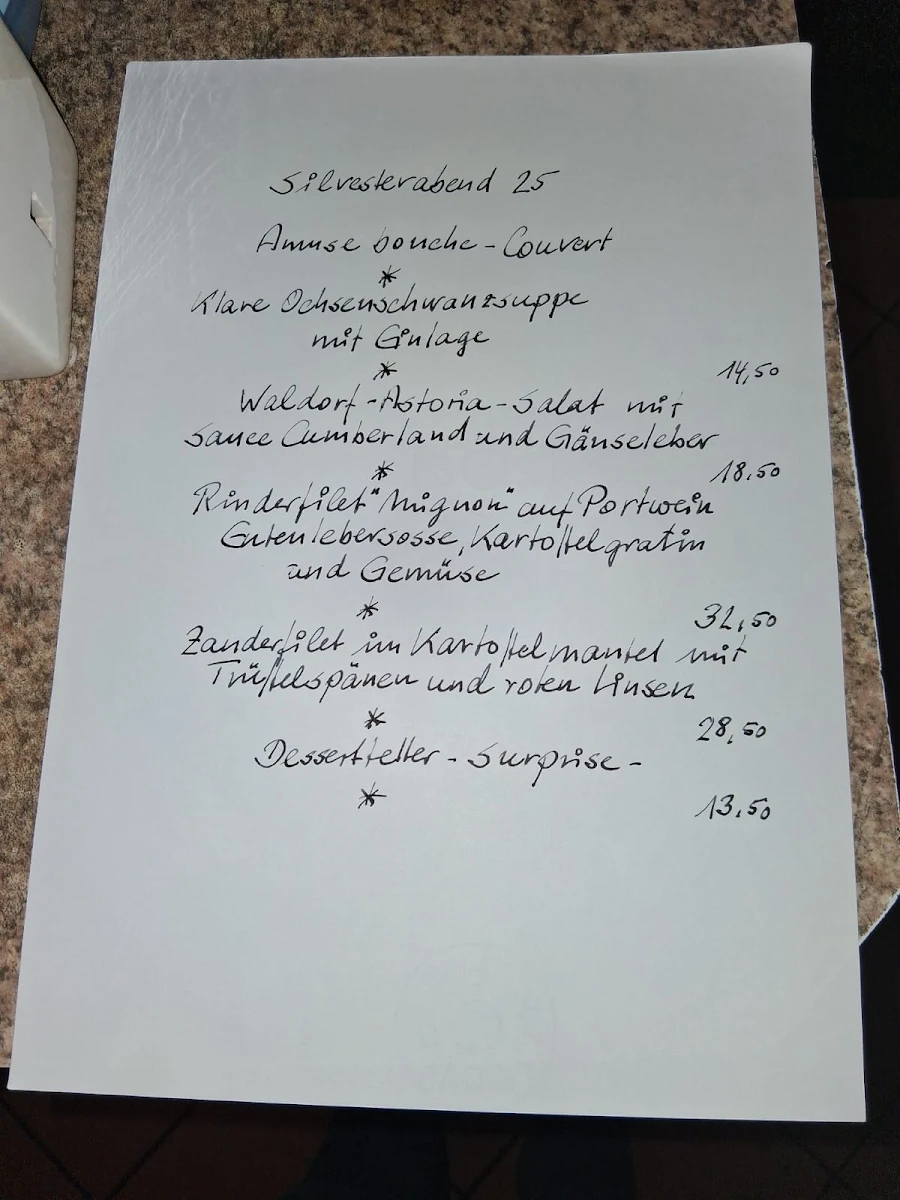 Silvesterabend 25
Amuse bouche - Couvert
*
Klare Ochsenschwanzsuppe
mit Einlage
*
14,50
Waldorf-Astoria-Salat mit
Sauce Cumberland und Gänseleber
*
18.50
Rinderfilet "Mignon" auf Portwein
Entenlebersosse, Kartoffelgratin
und Gemüse
*
32,50
Zanderfilet im Kartoffelmantel mit
Trüffelspänen und roten Linsen
*
28,50
Dessertteller - Surprise -
*
13.50